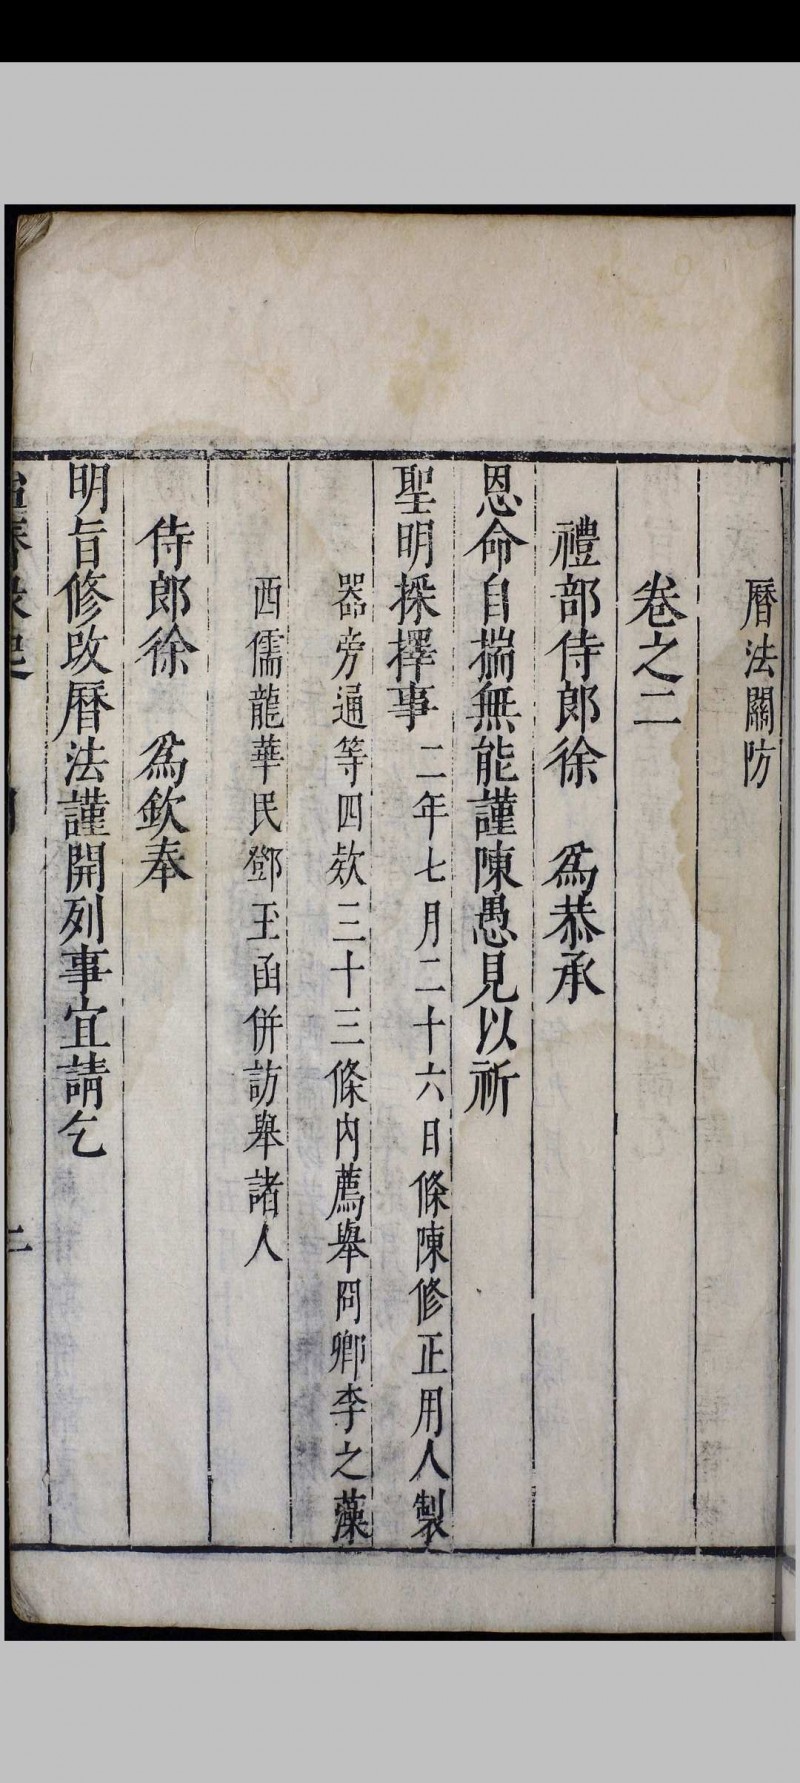 曆法關防
卷之二
禮部侍郎徐　爲恭承
恩命自揣無能謹陳愚見以祈
聖明採擇事二年七月二十六日條陳修正用人製
器旁通等四欵三十三條內薦舉冏卿李之藻
西儒龍華民鄧玉函併訪舉諸人
侍郎徐　爲欽奉
明旨修改曆法謹開列事宜請乞